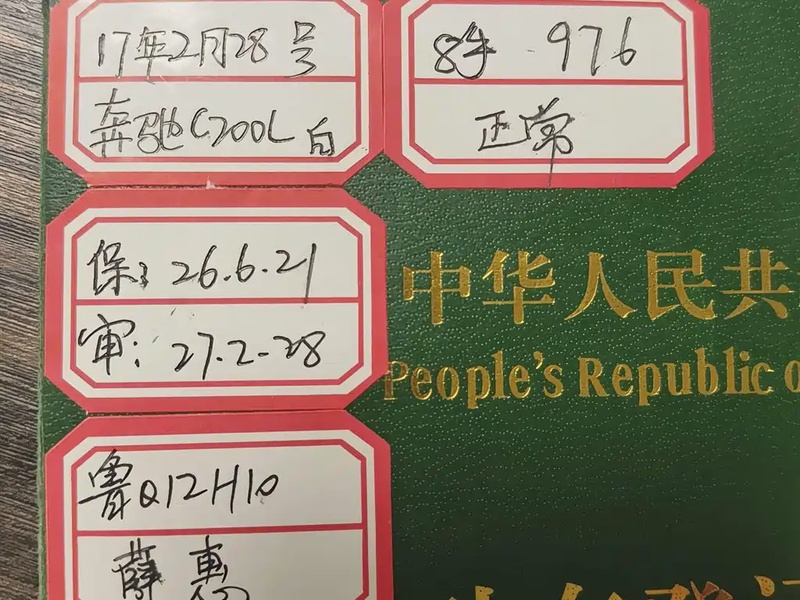 17年2月28号
奔驰C200L 白
8手 976
正常
保: 26.6.21
审: 27.2-28
中华人民共
People's Republic o
鲁Q12H10
薛